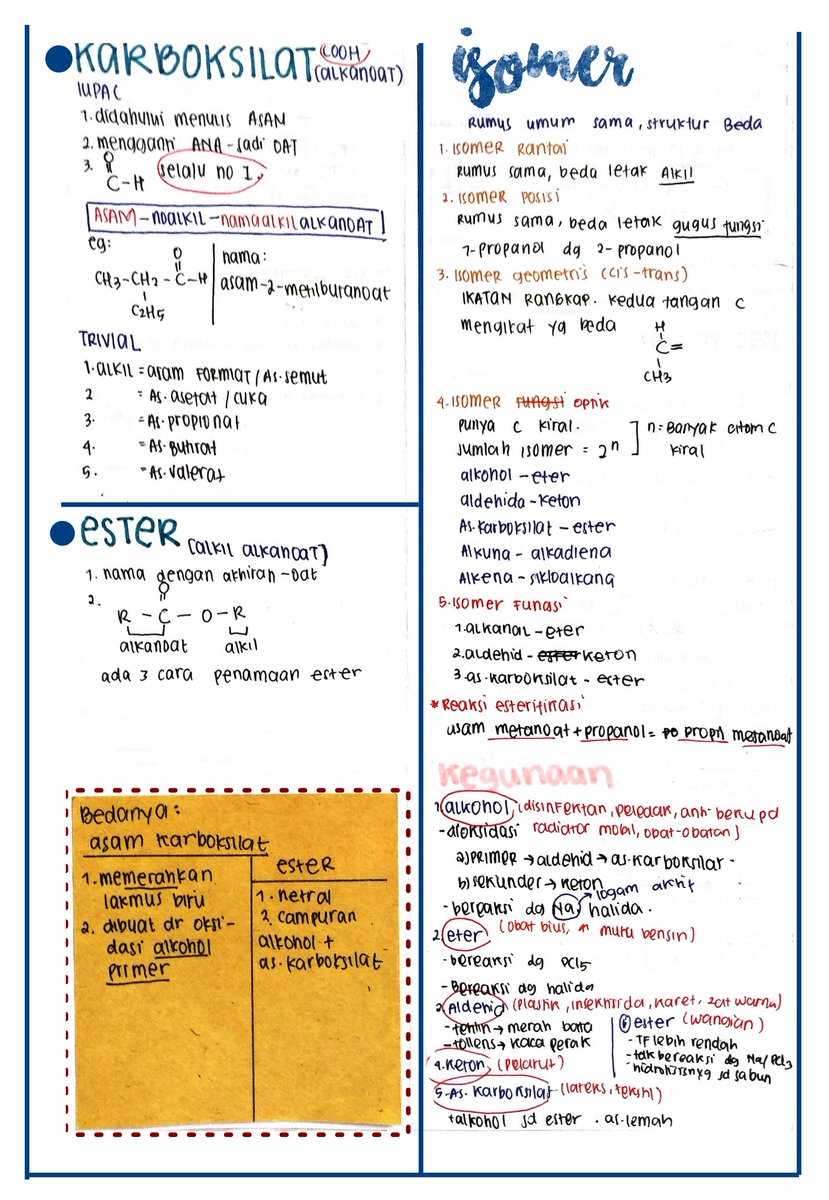 KARBOKSILAT COOH
(alkanoat)
IUPAC
1. didahului menulis ASAM
2. mengganti ANA - jadi OAT
3. O
C - H selalu no 1.
ASAM - noALKIL - namaalkil ALKANOAT
eg:
O
CH3 - CH2 - C - H
C2H5
nama:
asam-2-metilbutanoat
TRIVIAL
1. alkil = asam FORMAT / As. semut
2 = As. asetat / cuka
3. = As. propionat
4. = As. Butirat
5. = As. valerat
ESTER [alkil alkanoat]
1. nama dengan akhiran -oat
2. O
R - C - O - R
alkanoat alkil
ada 3 cara penamaan ester
Bedanya:
asam karboksilat
1. memerahkan
lakmus biru
2. dibuat dr oksi-
dasi alkohol
primer
ester
1. netral
2. campuran
alkohol +
as. karboksilat
isomer
Rumus umum sama, struktur Beda
1. Isomer Rantai
Rumus sama, beda letak Alkil
2. Isomer posisi
Rumus sama, beda letak gugus fungsi
1-propanol dg 2-propanol
3. Isomer geometris (cis-trans)
IKATAN RANGKAP. Kedua tangan C
mengikat yg beda
H
C =
CH3
4. Isomer fungsi optik
punya C kiral.
jumlah isomer = 2^n
n = Banyak atom C
kiral
alkohol - eter
aldehida - keton
As. karboksilat - ester
Alkuna - alkadiena
Alkena - sikloalkana
5. Isomer Fungsi
1. alkanal - eter
2. aldehid - ester keton
3. as. karboksilat - ester
*Reaksi esterifikasi
asam metanoat + propanol = propil metanoat
Kegunaan
1. alkohol (disinfektan, peledak, anti beku pd
- dioksidasi radiator mobil, obat-obatan)
a) primer → aldehid → as. karboksilat
b) sekunder → keton
- bereaksi dg Na, halida. → logam aktif
2. eter (obat bius, ↑ mutu bensin)
- bereaksi dg PCl5
- Bereaksi dg halida
3. Aldehid (plastik, insektisida, karet, zat warna)
- fehlin → merah bata
- tollens → kaca perak
4. Keton (pelarut)
5. As. karboksilat (lateks, tekstil)
+ alkohol jd ester . as. lemah
6 ester (wangian)
- TF lebih rendah
- tdk bereaksi dg Na/PCl3
- hidrolisisnya jd sabun